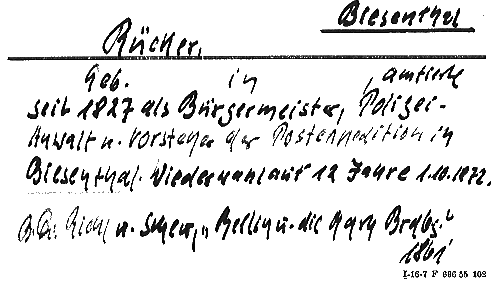 Biesenthal
Rücker,
Geb. in , amtierte
seit 1827 als Bürgermeister, Polizei-
Anwalt u. Vorsteher der Postexpedition in
Biesenthal. Wiederwahl auf 12 Jahre 1.10.1872.
u. " Berlin u. die Mark Brdbg."
1861
I-16-7 F 696 55 102